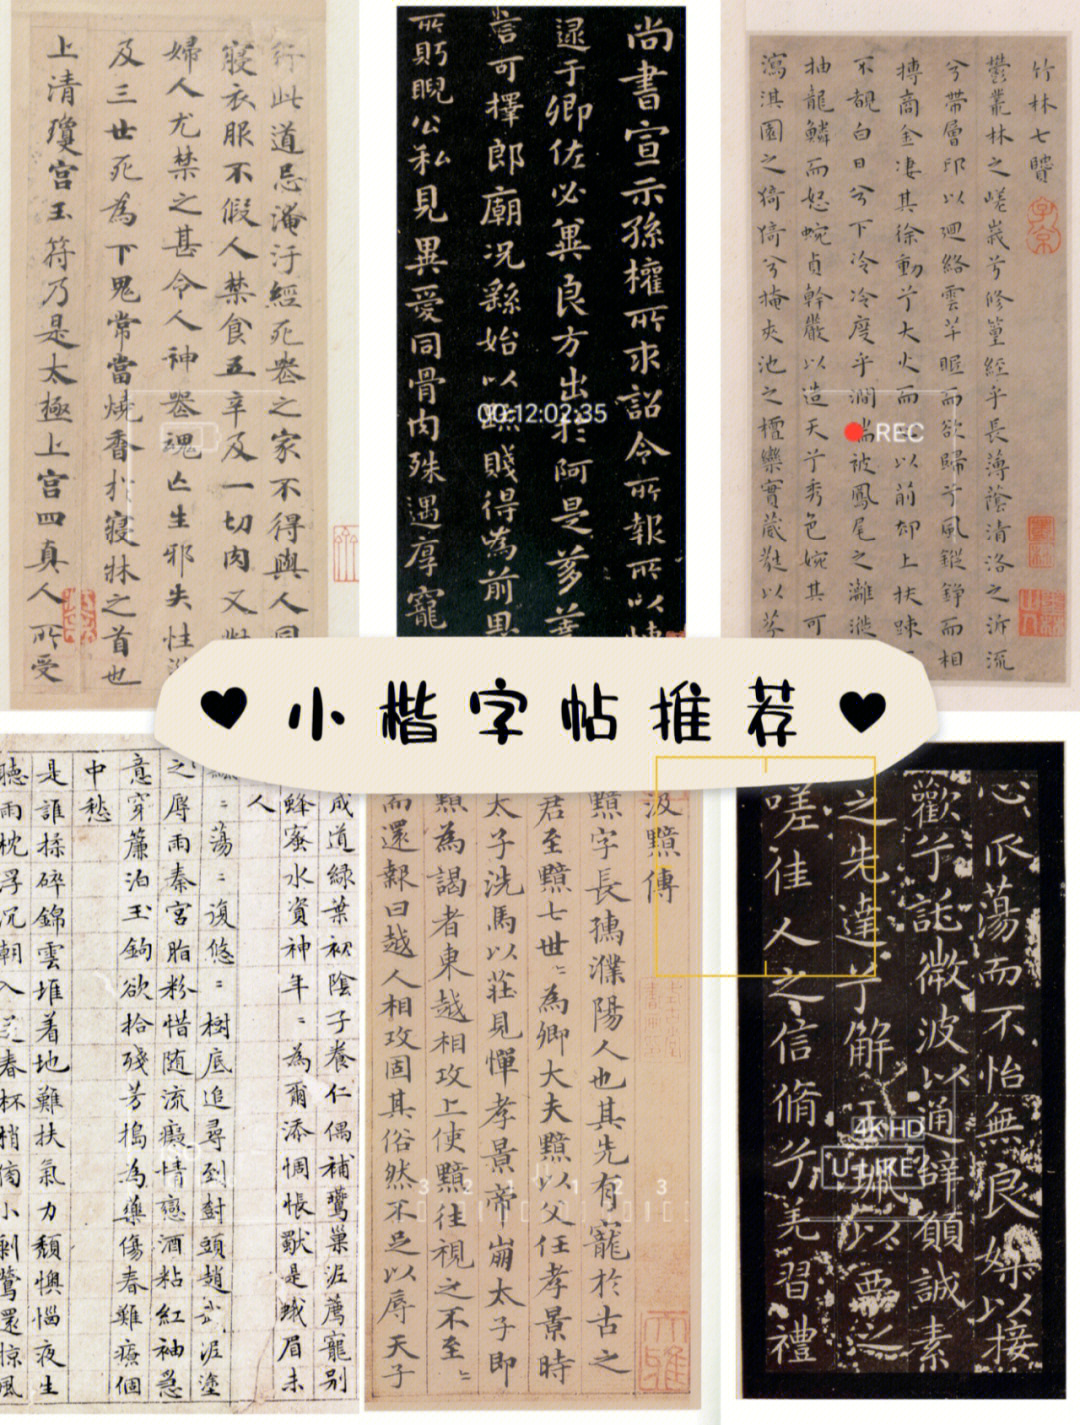 行此道忌淹汙經死喪之家不得與人同
寢衣服不假人禁食五辛及一切肉又對
婦人尤禁之甚令人神喪魂亡生邪失性
及三世死為下鬼常當燒香扵寢牀之首也
上清瓊宮玉符乃是太極上宮四真人所受
尚書宣示孫權所求詔令所報所以博
逮于卿佐必兾良方出於阿是芻蕘
言可擇郎廟況繇始以疏賤得為前恩
所䀢睨公私見異愛同骨肉殊遇厚寵
竹林七賢
鬱叢林之嵯峩兮修篁經乎長薄蔭清洛之沂流
兮帶層邙以迴絡雲芊眠而欲歸兮風鏦錚而相
摶商金淒其徐動兮大火而以前却上扶踈
不覩白日兮下冷冷度乎澗 被鳳尾之灕
抽龍鱗而怒蜿貞幹嚴以造天兮秀色婉其可
瀉淇園之猗猗兮掩夾池之檀欒實蕆 以
00:12:02:35
REC
♥ 小楷字帖推荐 ♥
成道綠葉初陰子養仁偶補鶯巢泥薦寵别
蜂蜜水資神年〻為爾添惆悵獸是蛾眉未
人
〻蕩〻復悠〻樹底追尋到尌頭趙 泥塗
之辱雨秦宮脂粉惜随流癡情戀酒粘紅袖急
意穿簾泊玉鉤欲拾殘芳搗為藥傷春難療個
中愁
是誰揉碎錦雲堆着地難扶氣力頹懊惱夜生
聽雨枕浮沉朝入 春杯稍 小剩鶯還掠風
汲黯傳
黯字長孺濮陽人也其先有寵於古之
君至黯七世〻為卿大夫黯以父任孝景時
太子洗馬以莊見憚孝景帝崩太子即
黯為謁者東越相攻上使黯往視之不至〻
而還報曰越人相攻固其俗然不足以辱天子
心爪蕩而不怡無良媒以接
歡兮託微波以通辝願誠素
之先達兮解玉珮以要之
嗟佳人之信脩兮羌習禮
4K HD
U-LIKE
3 2 1 1 2 3